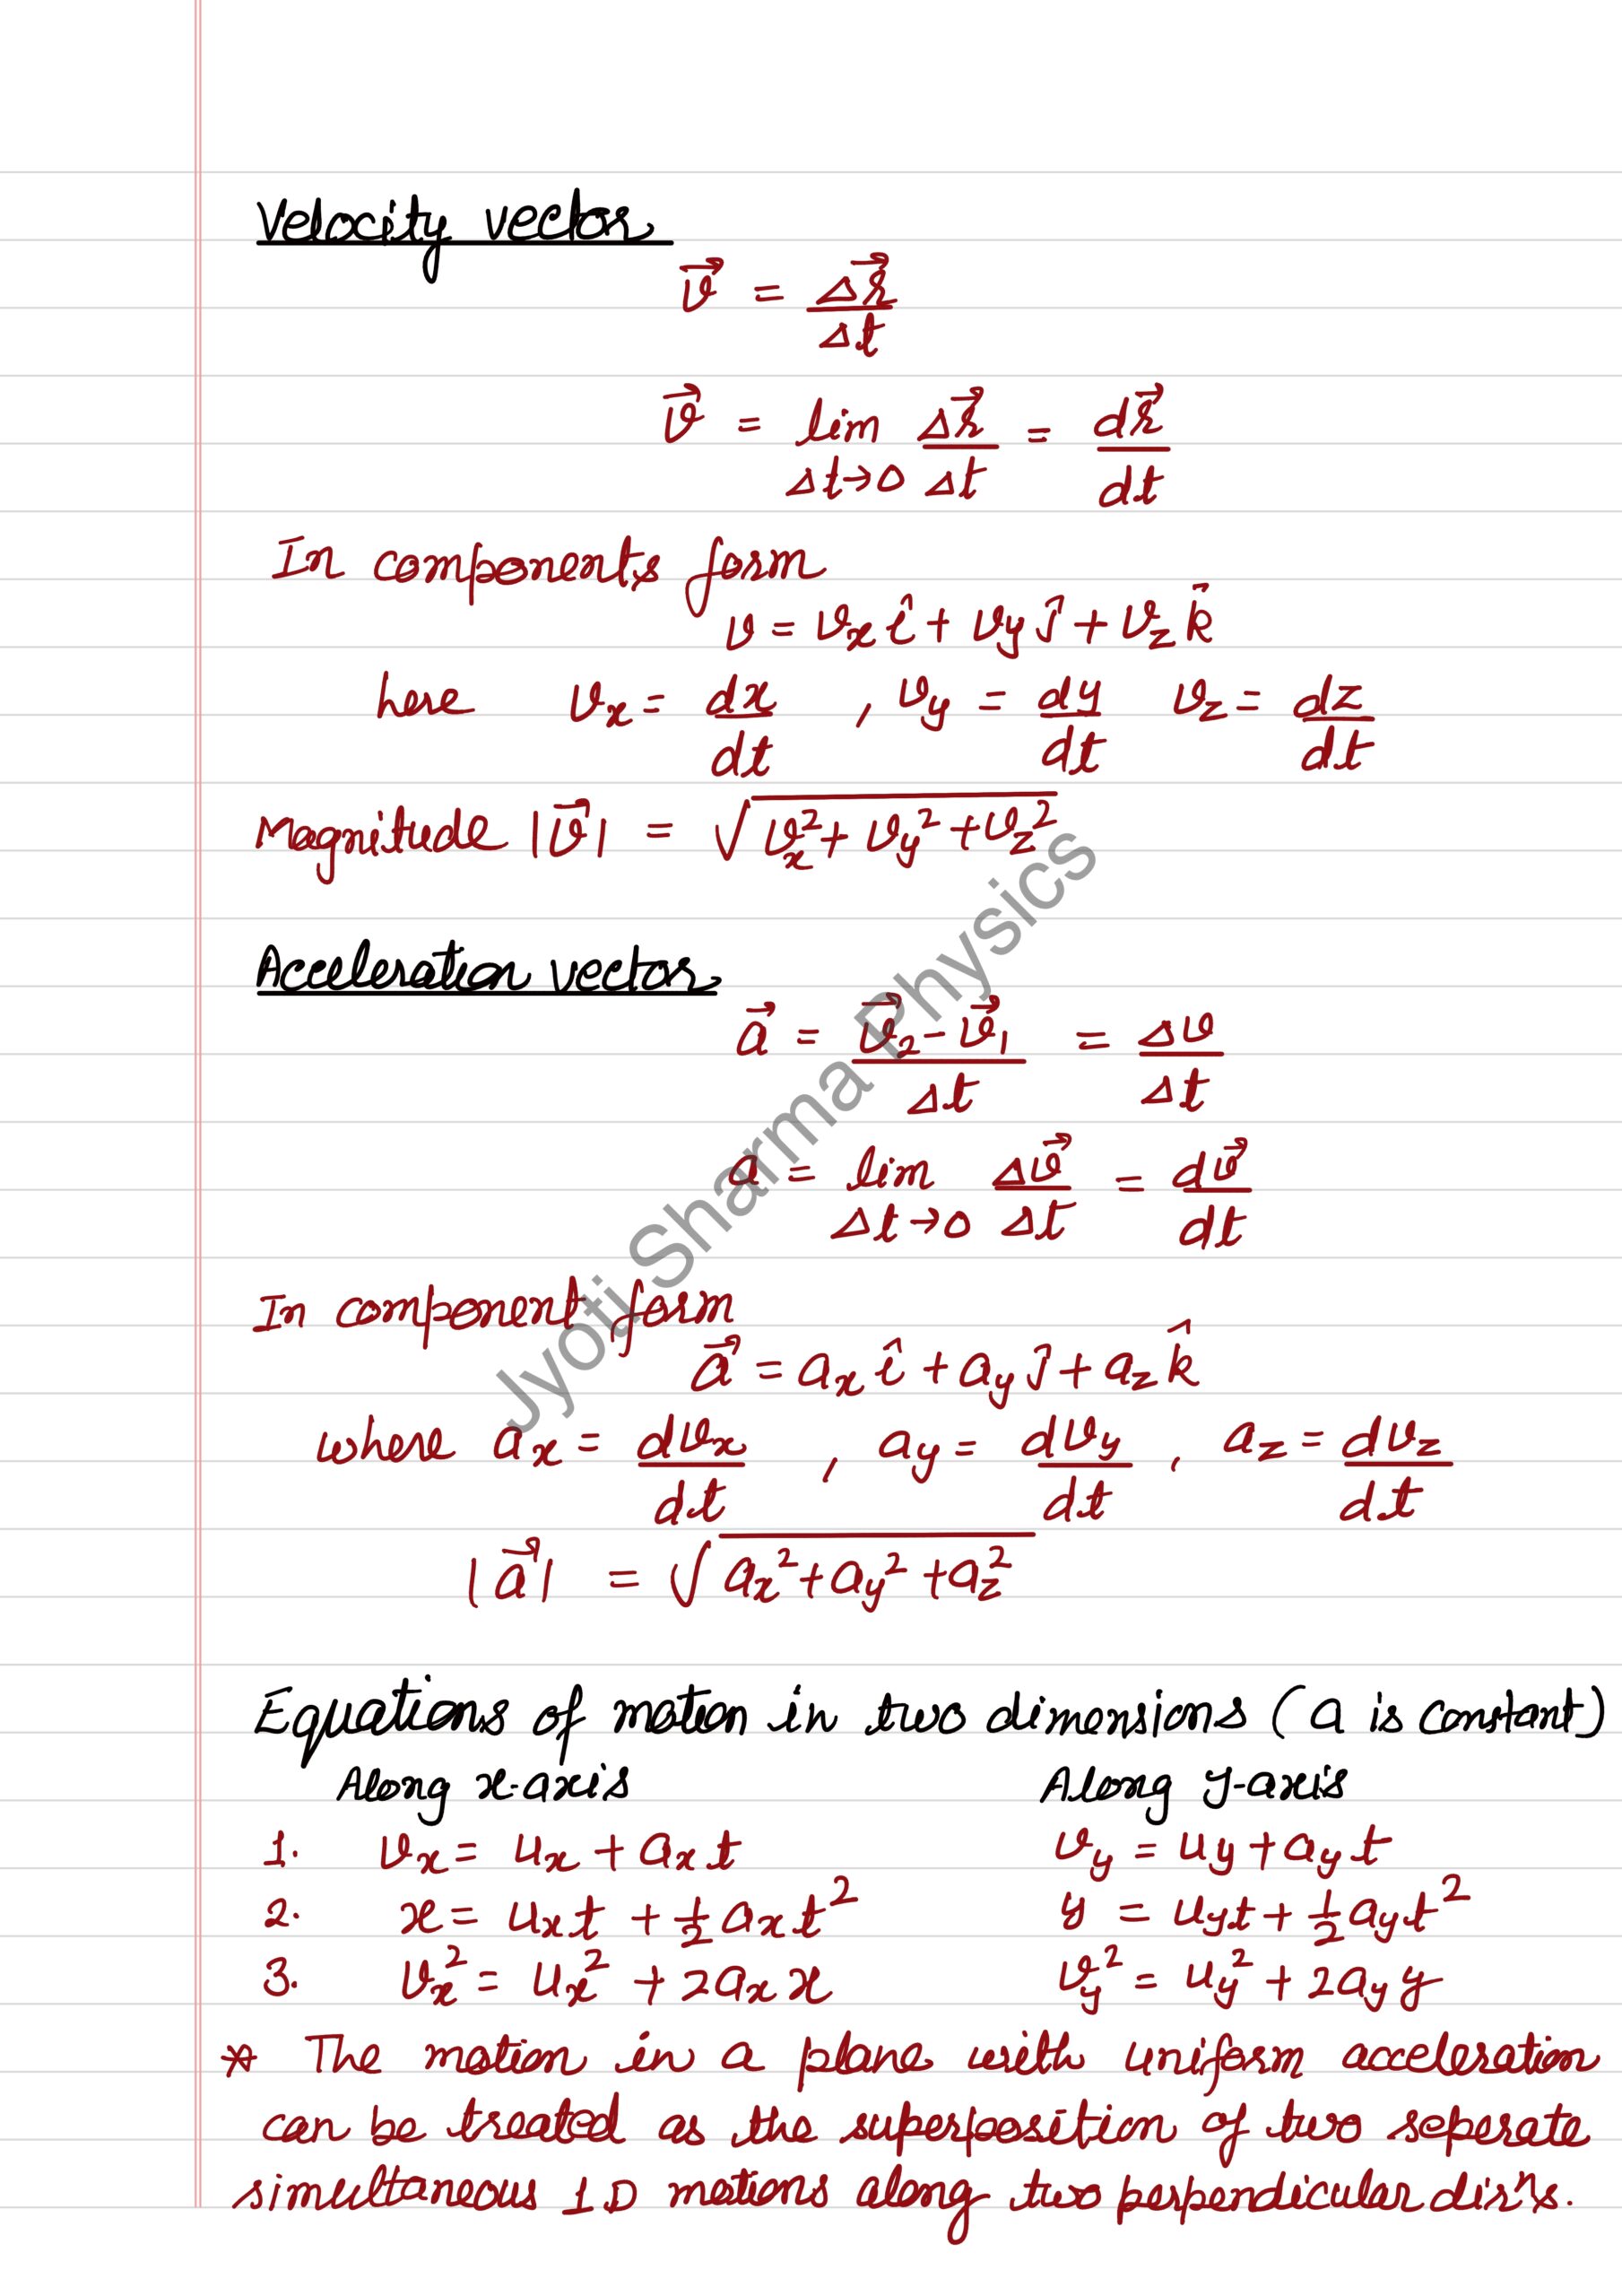 Velocity vector
v⃗ = Δr⃗/Δt
v⃗ = lim Δt→0 Δr⃗/Δt = dr⃗/dt
In components form
v = vₓ î + v_y ĵ + v_z k̂
here vₓ = dx/dt , v_y = dy/dt v_z = dz/dt
Magnitude |v⃗| = √(vₓ² + v_y² + v_z²)
Acceleration vector
a⃗ = (v⃗₂ - v⃗₁)/Δt = Δv/Δt
a = lim Δt→0 Δv⃗/Δt = dv⃗/dt
In component form
a⃗ = aₓ î + a_y ĵ + a_z k̂
where aₓ = dvₓ/dt , a_y = dv_y/dt , a_z = dv_z/dt
|a⃗| = √(aₓ² + a_y² + a_z²)
Equations of motion in two dimensions (a is constant)
Along x-axis Along y-axis
1. vₓ = uₓ + aₓt v_y = u_y + a_y t
2. x = uₓt + ½ aₓt² y = u_y t + ½ a_y t²
3. vₓ² = uₓ² + 2aₓx v_y² = u_y² + 2a_y y
* The motion in a plane with uniform acceleration
can be treated as the superposition of two seperate
simultaneous 1D motions along two perpendicular dirⁿs.
Jyoti Sharma Physics